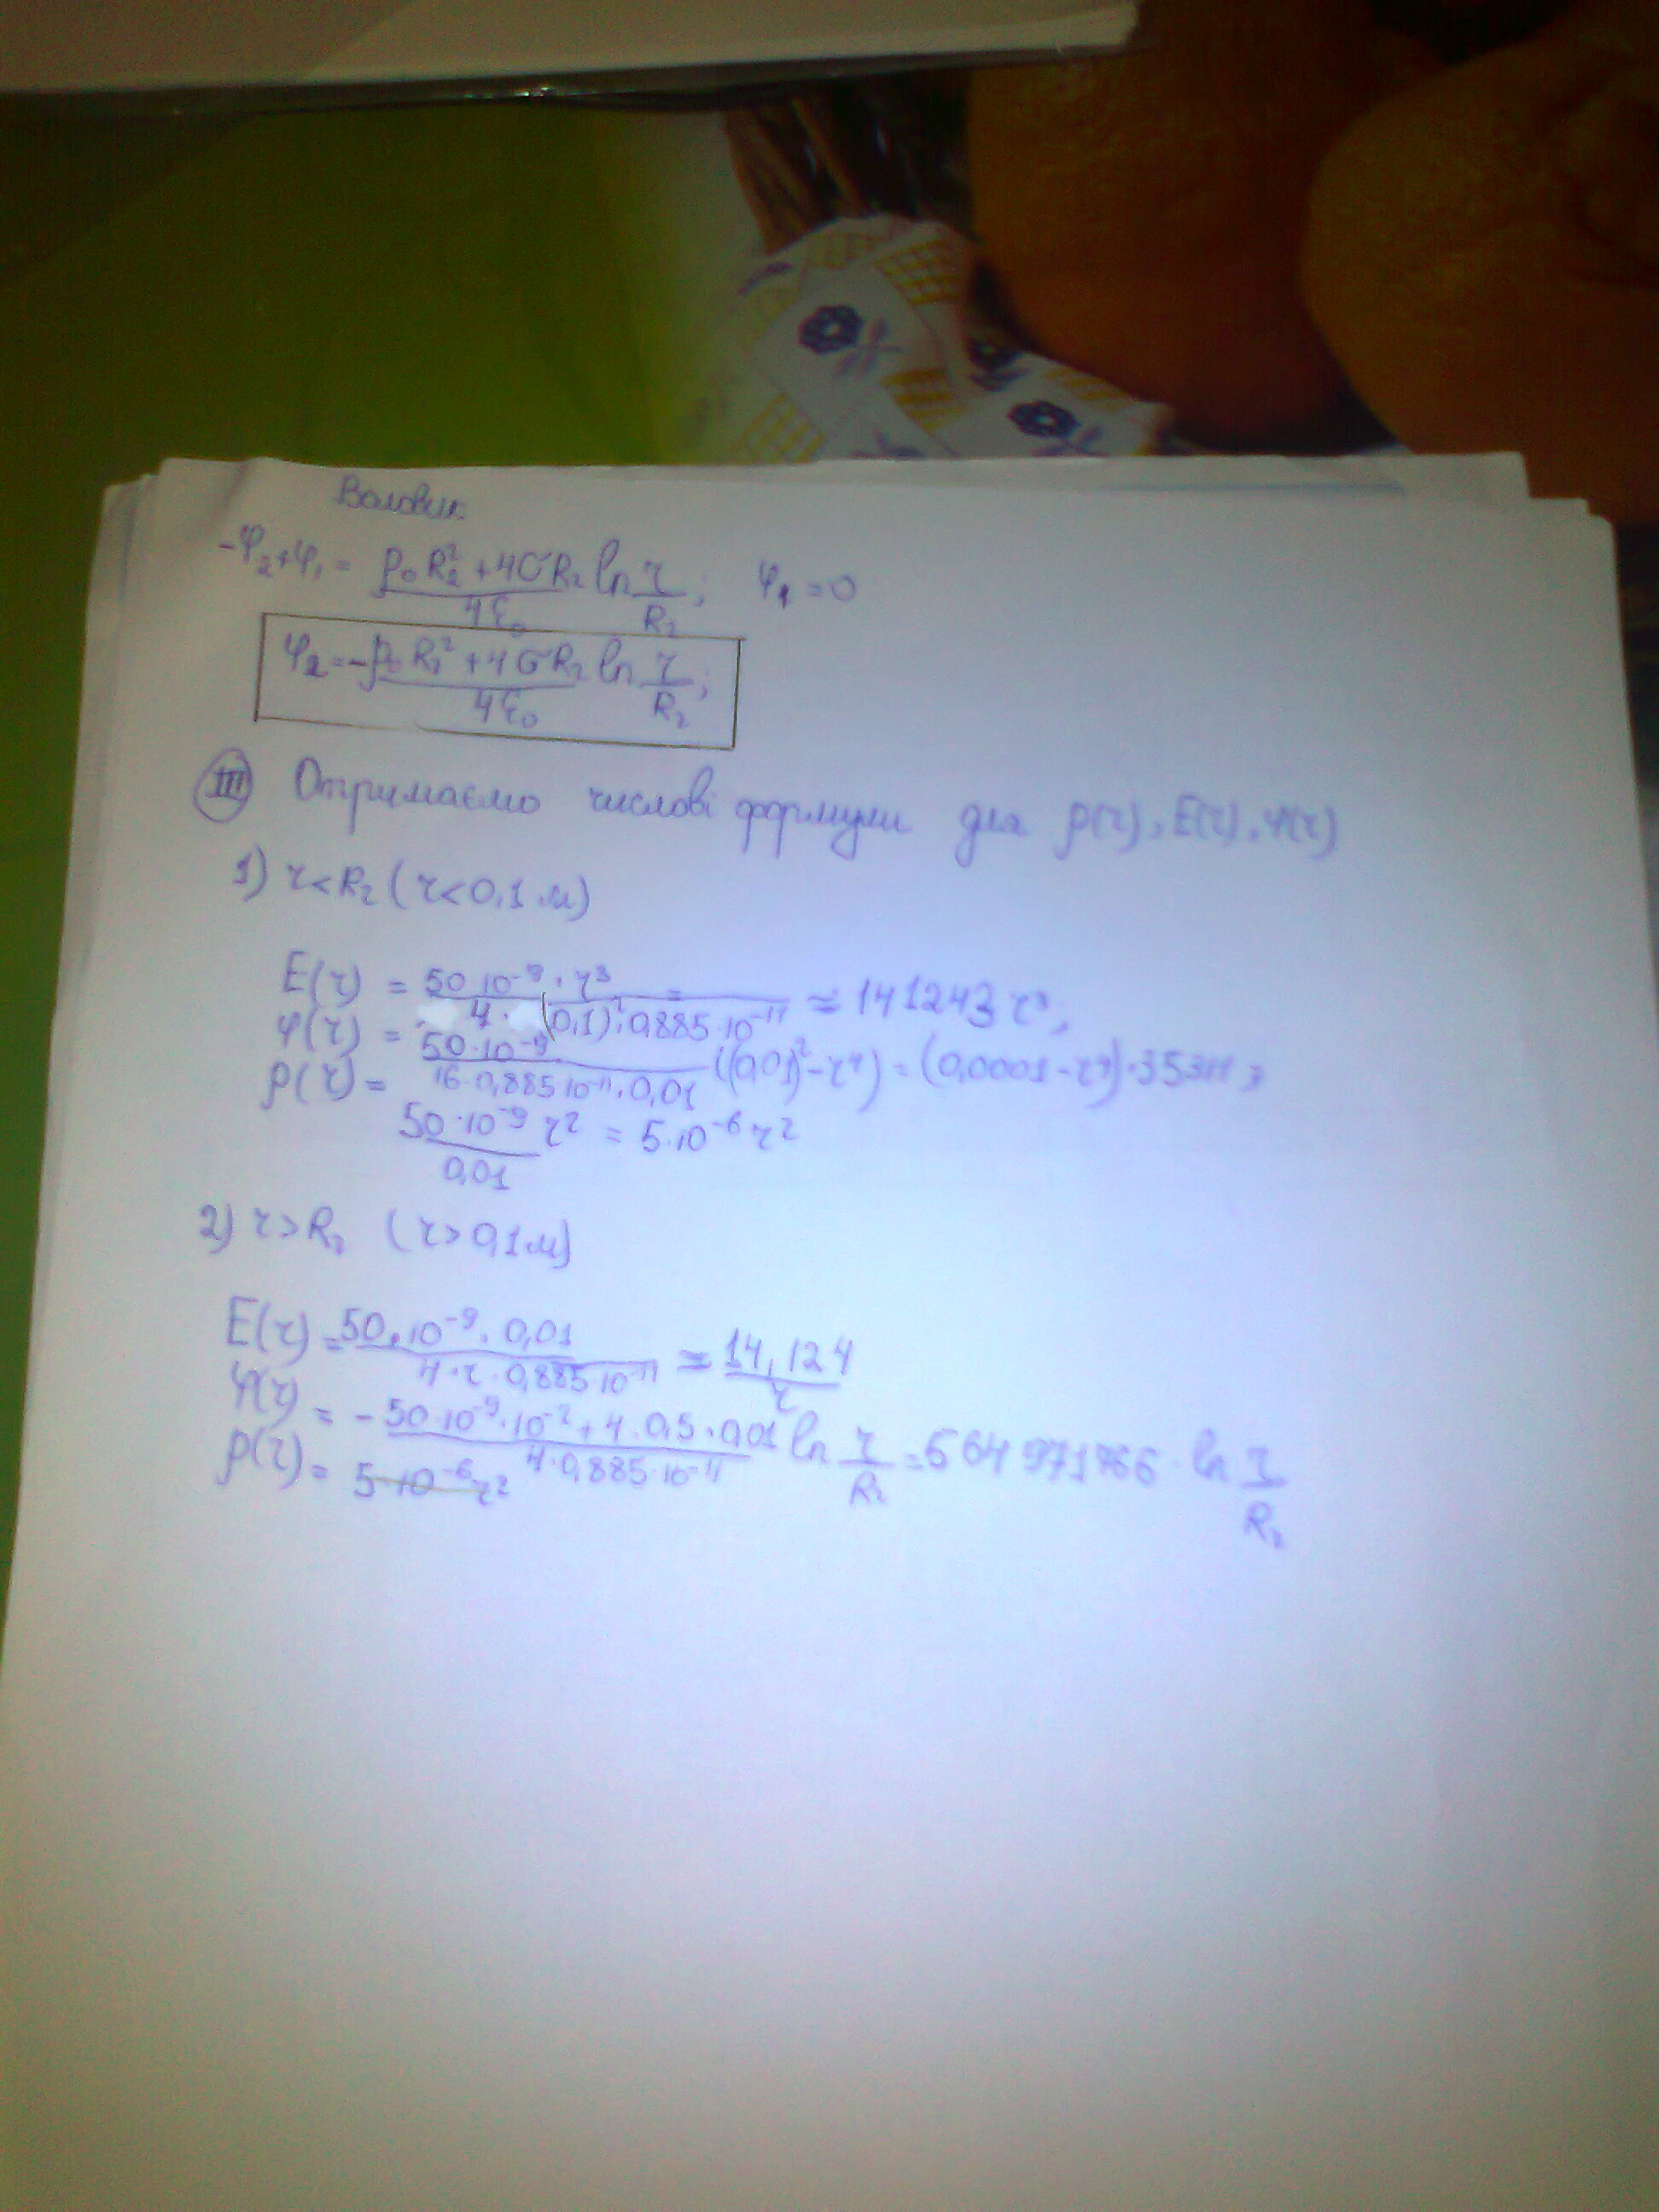 Воловик
-φ₂+φ₁ = (ρ₀R₂²+4σR₂)/(4ε₀) ln r/R₂; φ₁=0
φ₂=-(ρ₀R₂²+4σR₂)/(4ε₀) ln r/R₂;
III Отримаємо числові формули для ρ(r), E(r), φ(r)
1) r<R₂ (r<0,1м)
E(r) = (50·10⁻⁹·r³)/(4·(0,1)²·0,885·10⁻¹¹) = 141243 r³,
φ(r) = (50·10⁻⁹)/(16·0,885·10⁻¹¹·0,01) ((0,01)²-r⁴) = (0,0001-r⁴)·35311;
ρ(r) = (50·10⁻⁹)/(0,01) r² = 5·10⁻⁶r²
2) r>R₂ (r>0,1м)
E(r) = (50·10⁻⁹·0,01)/(4·r·0,885·10⁻¹¹) = 14,124/r
φ(r) = -(50·10⁻⁹·10⁻²+4·0,5·0,01)/(4·0,885·10⁻¹¹) ln r/R₂ = 564971766·ln r/R₂
ρ(r) = 5·10⁻⁶r²